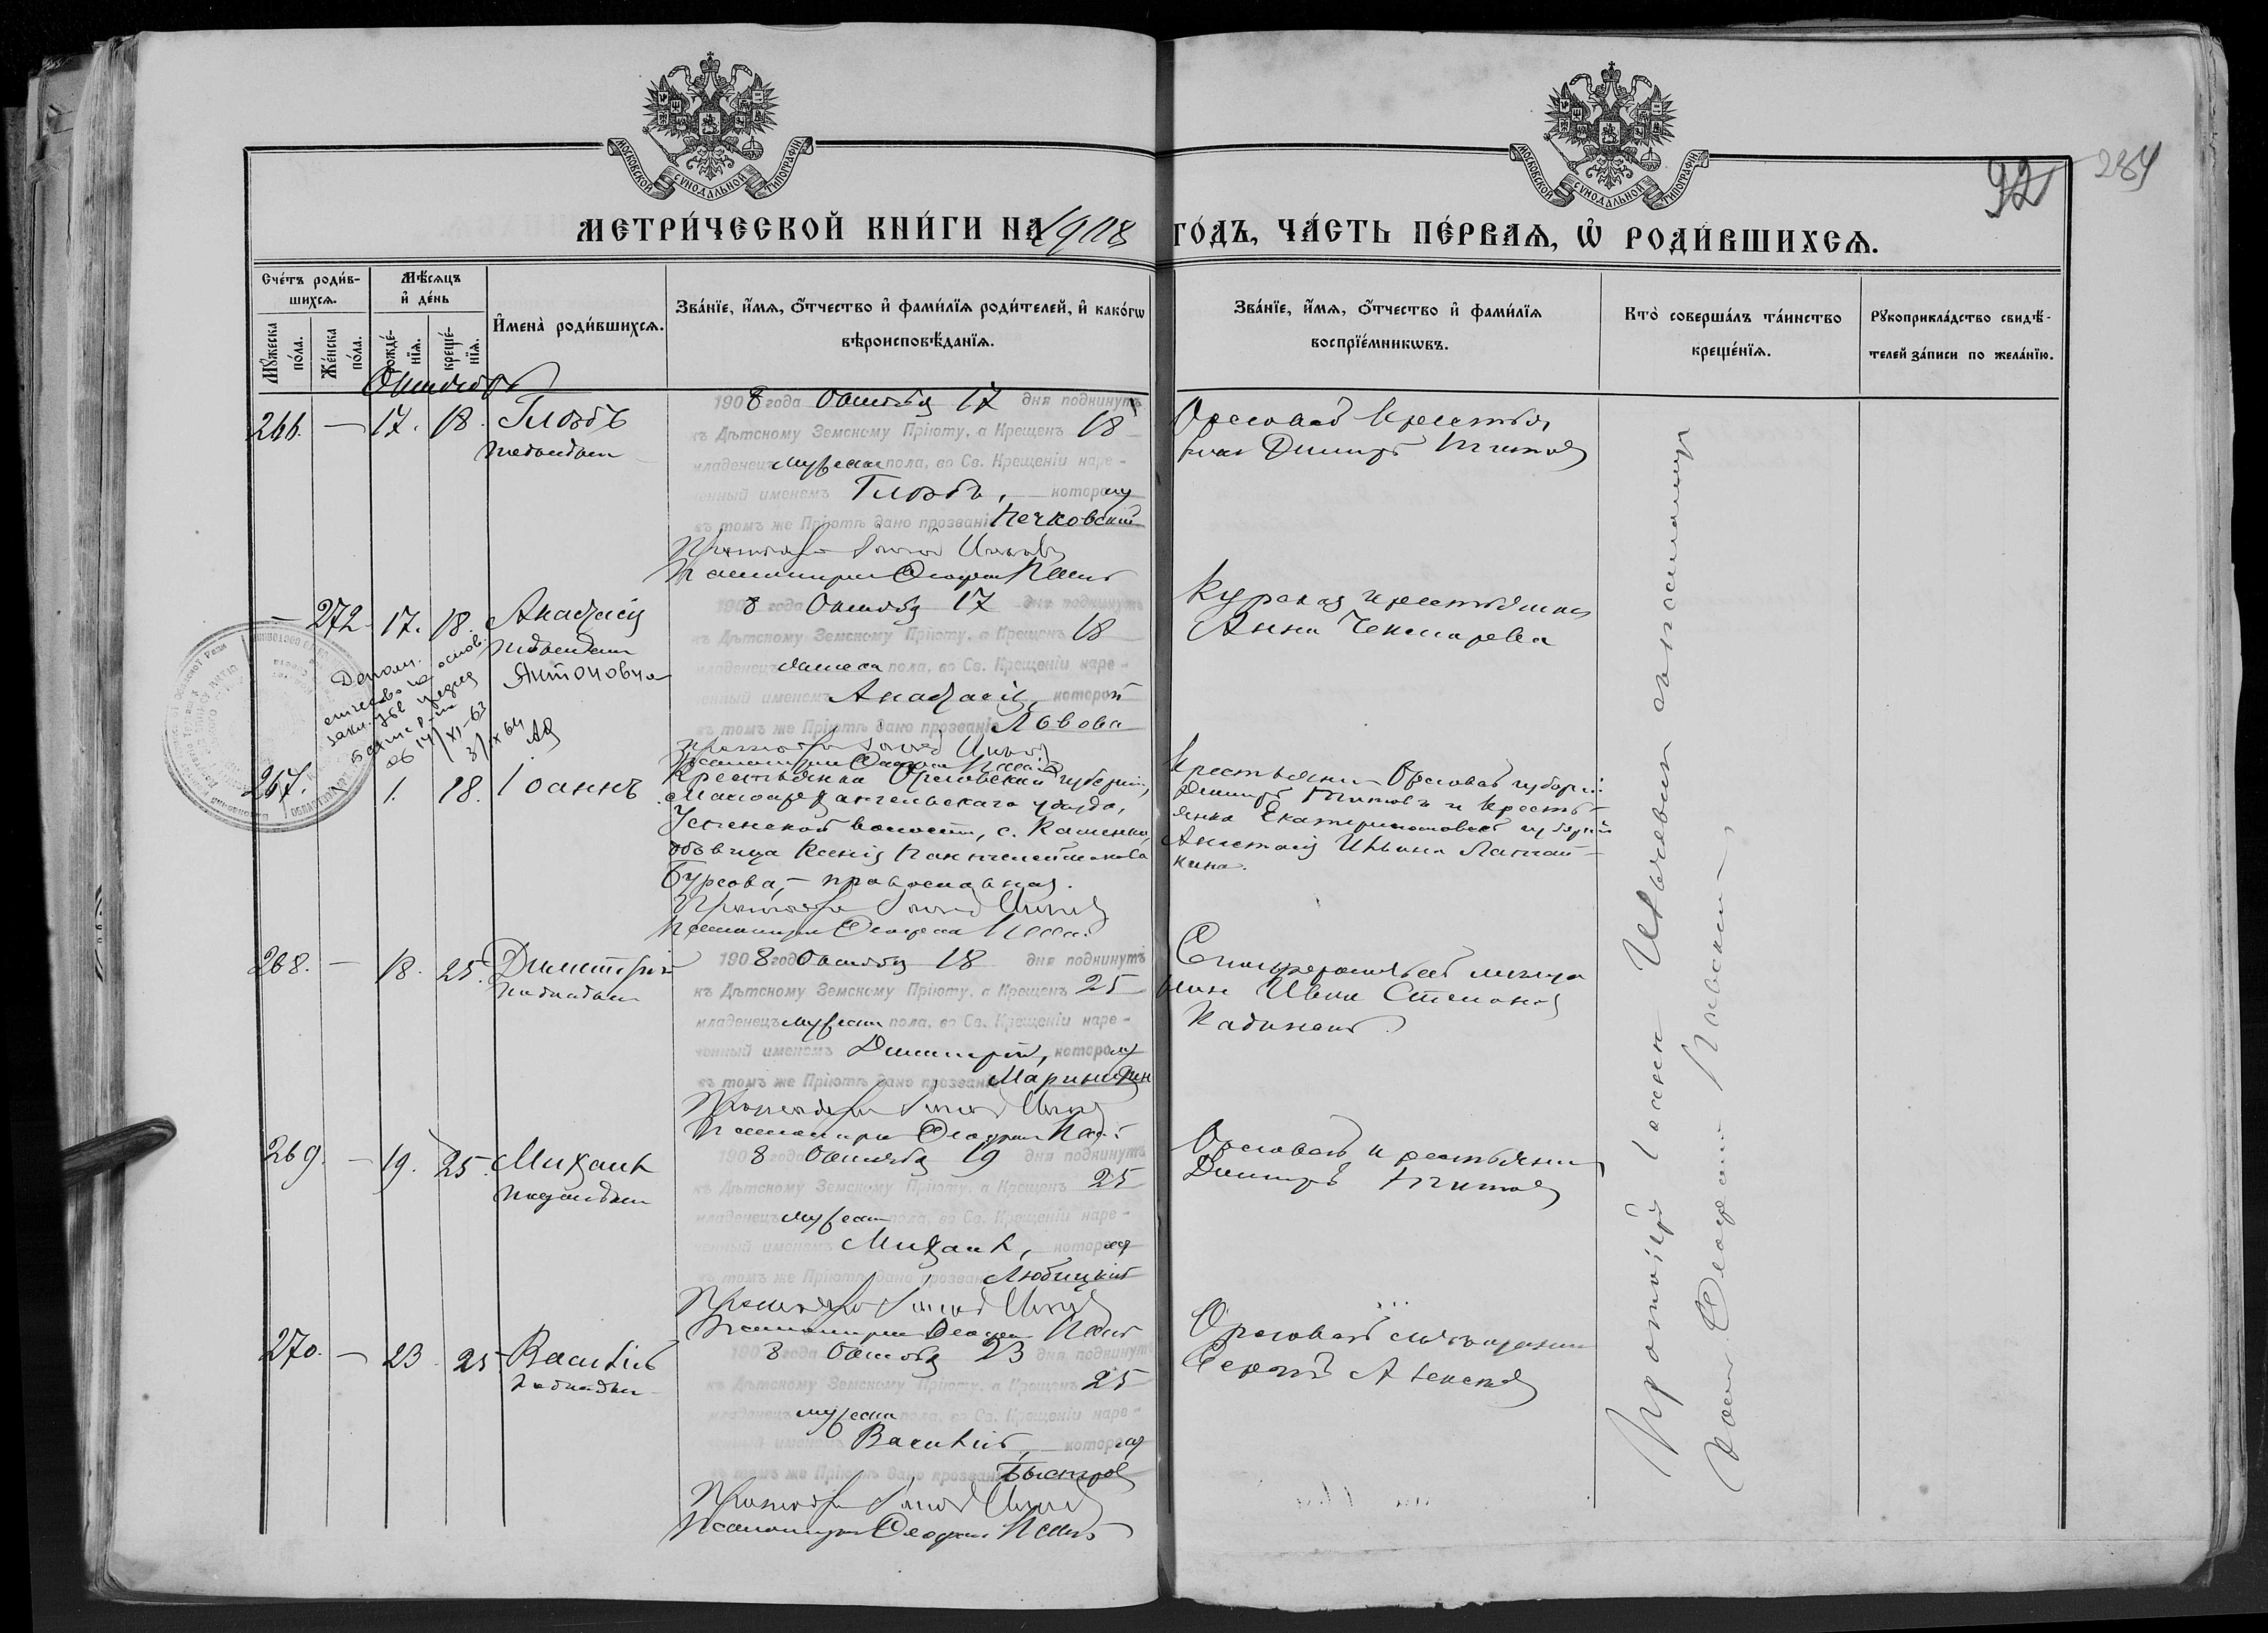 МОСКОВСКОЙ СѴНОДАЛЬНОЙ ТИПОГРАФІИ
МОСКОВСКОЙ СѴНОДАЛЬНОЙ ТИПОГРАФІИ
92 284
МЕТРИ́ЧЕСКОЙ КНИ́ГИ НА 1908 ГО́ДЪ, ЧА́СТЬ ПЕ́РВАѦ, Ѡ РОДИ́ВШИХСѦ.
Сче́тъ роди́в-
шихсѧ.
Мꙋ́жеска по́ла.
Же́нска по́ла.
Мѣ́сѧцъ
и҆ де́нь
рожде́-
нїѧ.
креще́-
нїѧ.
И҆мена̀ роди́вшихсѧ.
Зва́нїе, и҆́мѧ, ѻ҆́тчество и҆ фами́лїѧ роди́телей, и҆ како́гѡ
вѣроисповѣ́данїѧ.
Зва́нїе, и҆́мѧ, ѻ҆́тчество и҆ фами́лїѧ
воспрїе́мникѡвъ.
Кто̀ соверша́лъ та́инство
креще́нїѧ.
Рꙋкоприкла́дство свидѣ́-
телей за́писи по жела́нїю.
Октябрь
266. — 17. 18. Глѣбъ
подкидыш
1908 года Октября 17 дня подкинутъ
къ Дѣтскому Земскому Пріюту, а Крещенъ 18
младенецъ мужеска пола, во Св. Крещеніи наре-
ченный именемъ Глѣбъ, которому
въ томъ же Пріютѣ дано прозваніе Печковскій
Протоіерей Іоаннъ
Псаломщикъ
Орловской крестья
нин Димитр Титов
— 272 17. 18. Анастасія
подкидыш
Антоновна
1908 года Октября 17 дня подкинутъ
къ Дѣтскому Земскому Пріюту, а Крещенъ 18
младенецъ женска пола, во Св. Крещеніи наре-
ченный именемъ Анастасія, которой
въ томъ же Пріютѣ дано прозваніе Львова
Протоіерей Іоаннъ
Псаломщикъ
Курская крестьянка
Анна Чекмарева
Дополн.
отчество на основ.
закл.
об 14/XI-63
3/IX 64
267. 1. 18. Іоаннъ
Крестьянка Орловской губерніи,
Малоархангельскаго уѣзда,
Успенской волости, с. Каменки,
дѣвица Ксенія Пантелеймонова
Бурсова, — православная.
Протоіерей Іоаннъ
Псаломщикъ
Крестьянин Орловской губерніи
Димитръ Титовъ и кресть-
янка Екатеринославской губерніи
Анастасія Ильина
кина.
268. — 18. 25. Димитрій
подкидыш
1908 года Октября 18 дня подкинутъ
къ Дѣтскому Земскому Пріюту, а Крещенъ 25
младенецъ мужеска пола, во Св. Крещеніи наре-
ченный именемъ Димитрій, которому
въ томъ же Пріютѣ дано прозваніе
Протоіерей Іоаннъ
Псаломщикъ
Симферопольскій мѣща
нин Иван Степанов
269. — 19. 25. Михаил
подкидыш
1908 года Октября 19 дня подкинутъ
къ Дѣтскому Земскому Пріюту, а Крещенъ 25
младенецъ мужеска пола, во Св. Крещеніи наре-
ченный именемъ Михаил, которому
въ томъ же Пріютѣ дано прозваніе Любицкій
Протоіерей Іоаннъ
Псаломщикъ
Орловской крестьянин
Димитръ Титов
270. — 23 25 Василій
подкидыш
1908 года Октября 23 дня подкинутъ
къ Дѣтскому Земскому Пріюту, а Крещенъ 25
младенецъ мужеска пола, во Св. Крещеніи наре-
ченный именемъ Василій, которому
въ томъ же Пріютѣ дано прозваніе Быстров
Протоіерей Іоаннъ
Псаломщикъ
Орловской мѣщанин
Сергѣй Алексѣев
Протоіерей Іоанн с псаломщиком